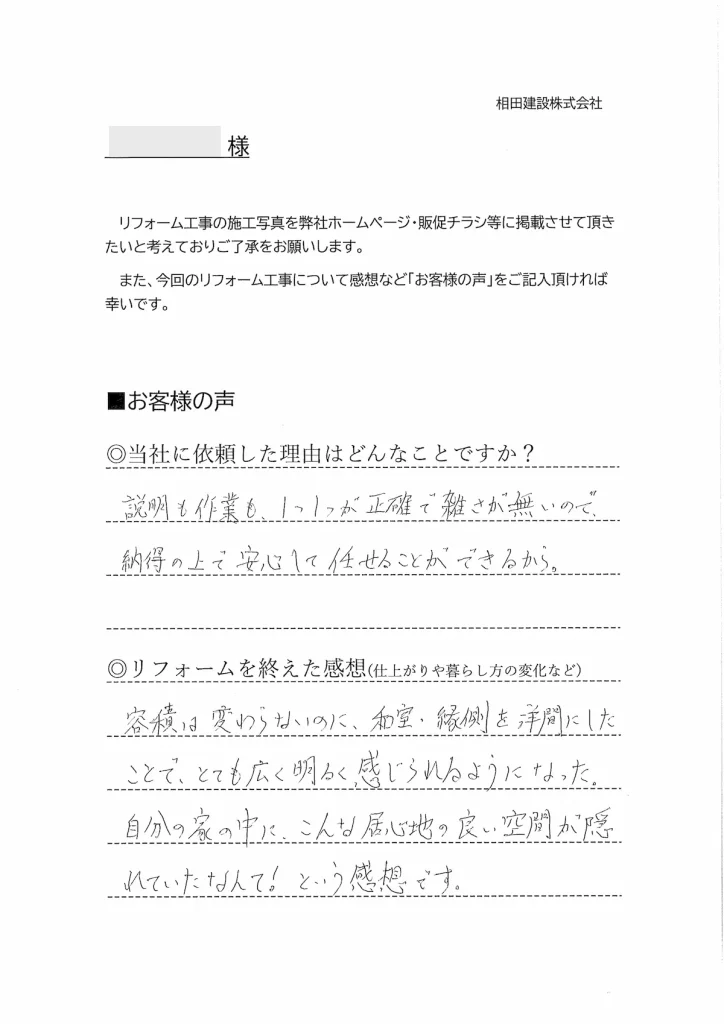 相田建設株式会社
様
リフォーム工事の施工写真を弊社ホームページ・販促チラシ等に掲載させて頂き
たいと考えておりご了承をお願いします。
また、今回のリフォーム工事について感想など「お客様の声」をご記入頂ければ
幸いです。
■お客様の声
◎当社に依頼した理由はどんなことですか？
説明も作業も、1つ1つが正確で雑さが無いので、
納得の上で安心して任せることができるから。
◎リフォームを終えた感想(仕上がりや暮らし方の変化など)
容積は変わらないのに、和室・縁側を洋間にした
ことで、とても広く明るく感じられるようになった。
自分の家の中に、こんな居心地の良い空間が隠
れていたなんて！という感想です。